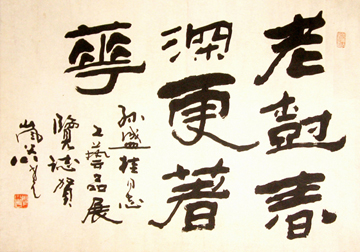 老樹春
深更著
華
孙盛桂同志
工藝品展
覽誌賀